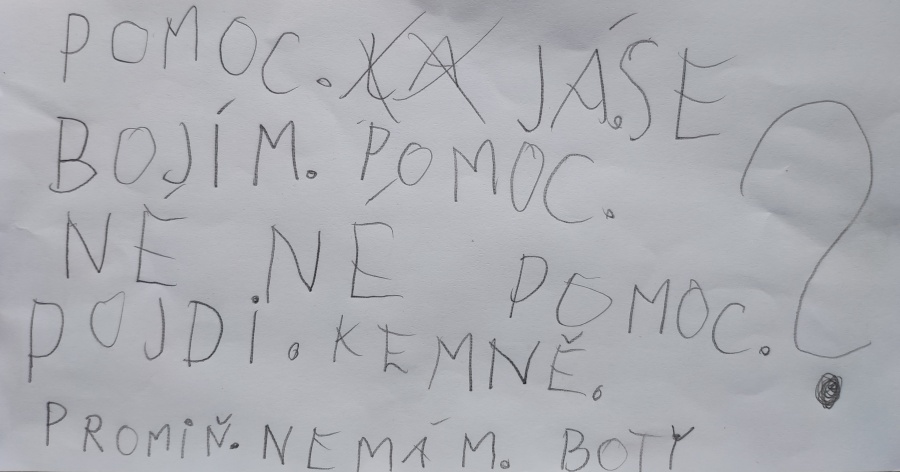 POMOC. JÁ.SE
BOJÍM. POMOC. ?
NÉ NÉ POMOC.
POJDI. KEMNĚ.
PROMIŇ. NEMÁM. BOTY